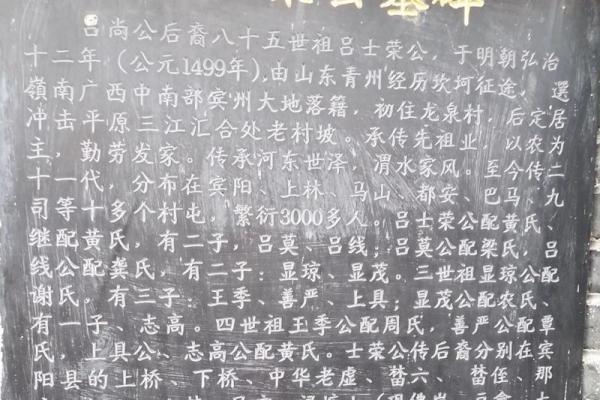 公墓碑
吕尚公后裔八十五世祖吕士荣公，于明朝弘治
十二年（公元1499年），由山东青州经历坎坷征途，選
嶺南广西中南部宾州大地落籍，初住龙泉村，后定居
冲击平原三江汇合处老村坡。承传先祖业，以农为
主，勤劳发家。传承河东世泽，渭水家风。至今传二
十一代，分布在宾阳、上林、马山、都安、巴马、九
司等十多个村屯，繁衍3000多人。吕士荣公配黄氏、
继配黄氏，有二子，吕莫、吕线；吕莫公配梁氏，吕
线公配龚氏，有二子：显琼、显茂。三世祖显琼公配
谢氏，有三子：王季、善严、上具；显茂公配农氏、
有一子、志高。四世祖王季公配周氏，善严公配覃
氏，上具公、志高公配黄氏。士荣公传后裔分别在宾
阳县的上桥、下桥、中华老虚、榃六、榃侄、那